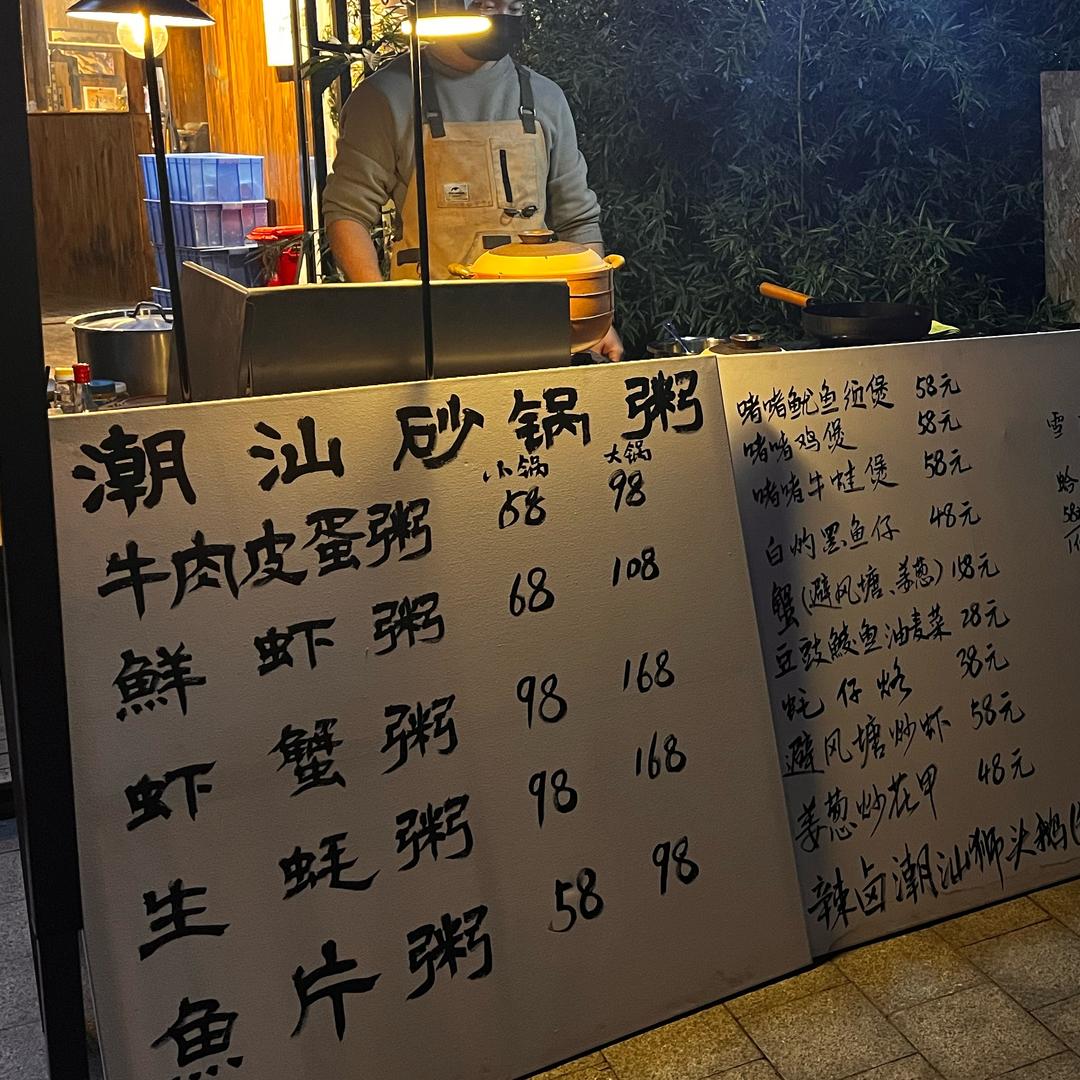 潮汕砂锅粥
小锅 大锅
牛肉皮蛋粥 58 98
鮮虾粥 68 108
虾蟹粥 98 168
生蚝粥 98 168
魚片粥 58 98
啫啫鱿鱼须煲 58元
啫啫鸡煲 58元
啫啫牛蛙煲 58元
白灼墨鱼仔 48元
蟹(避风塘、姜葱) 158元
豆豉鲮鱼油麦菜 28元
蚝仔烙 38元
避风塘炒虾 58元
姜葱炒花甲 48元
辣卤潮汕狮头鹅(
雪